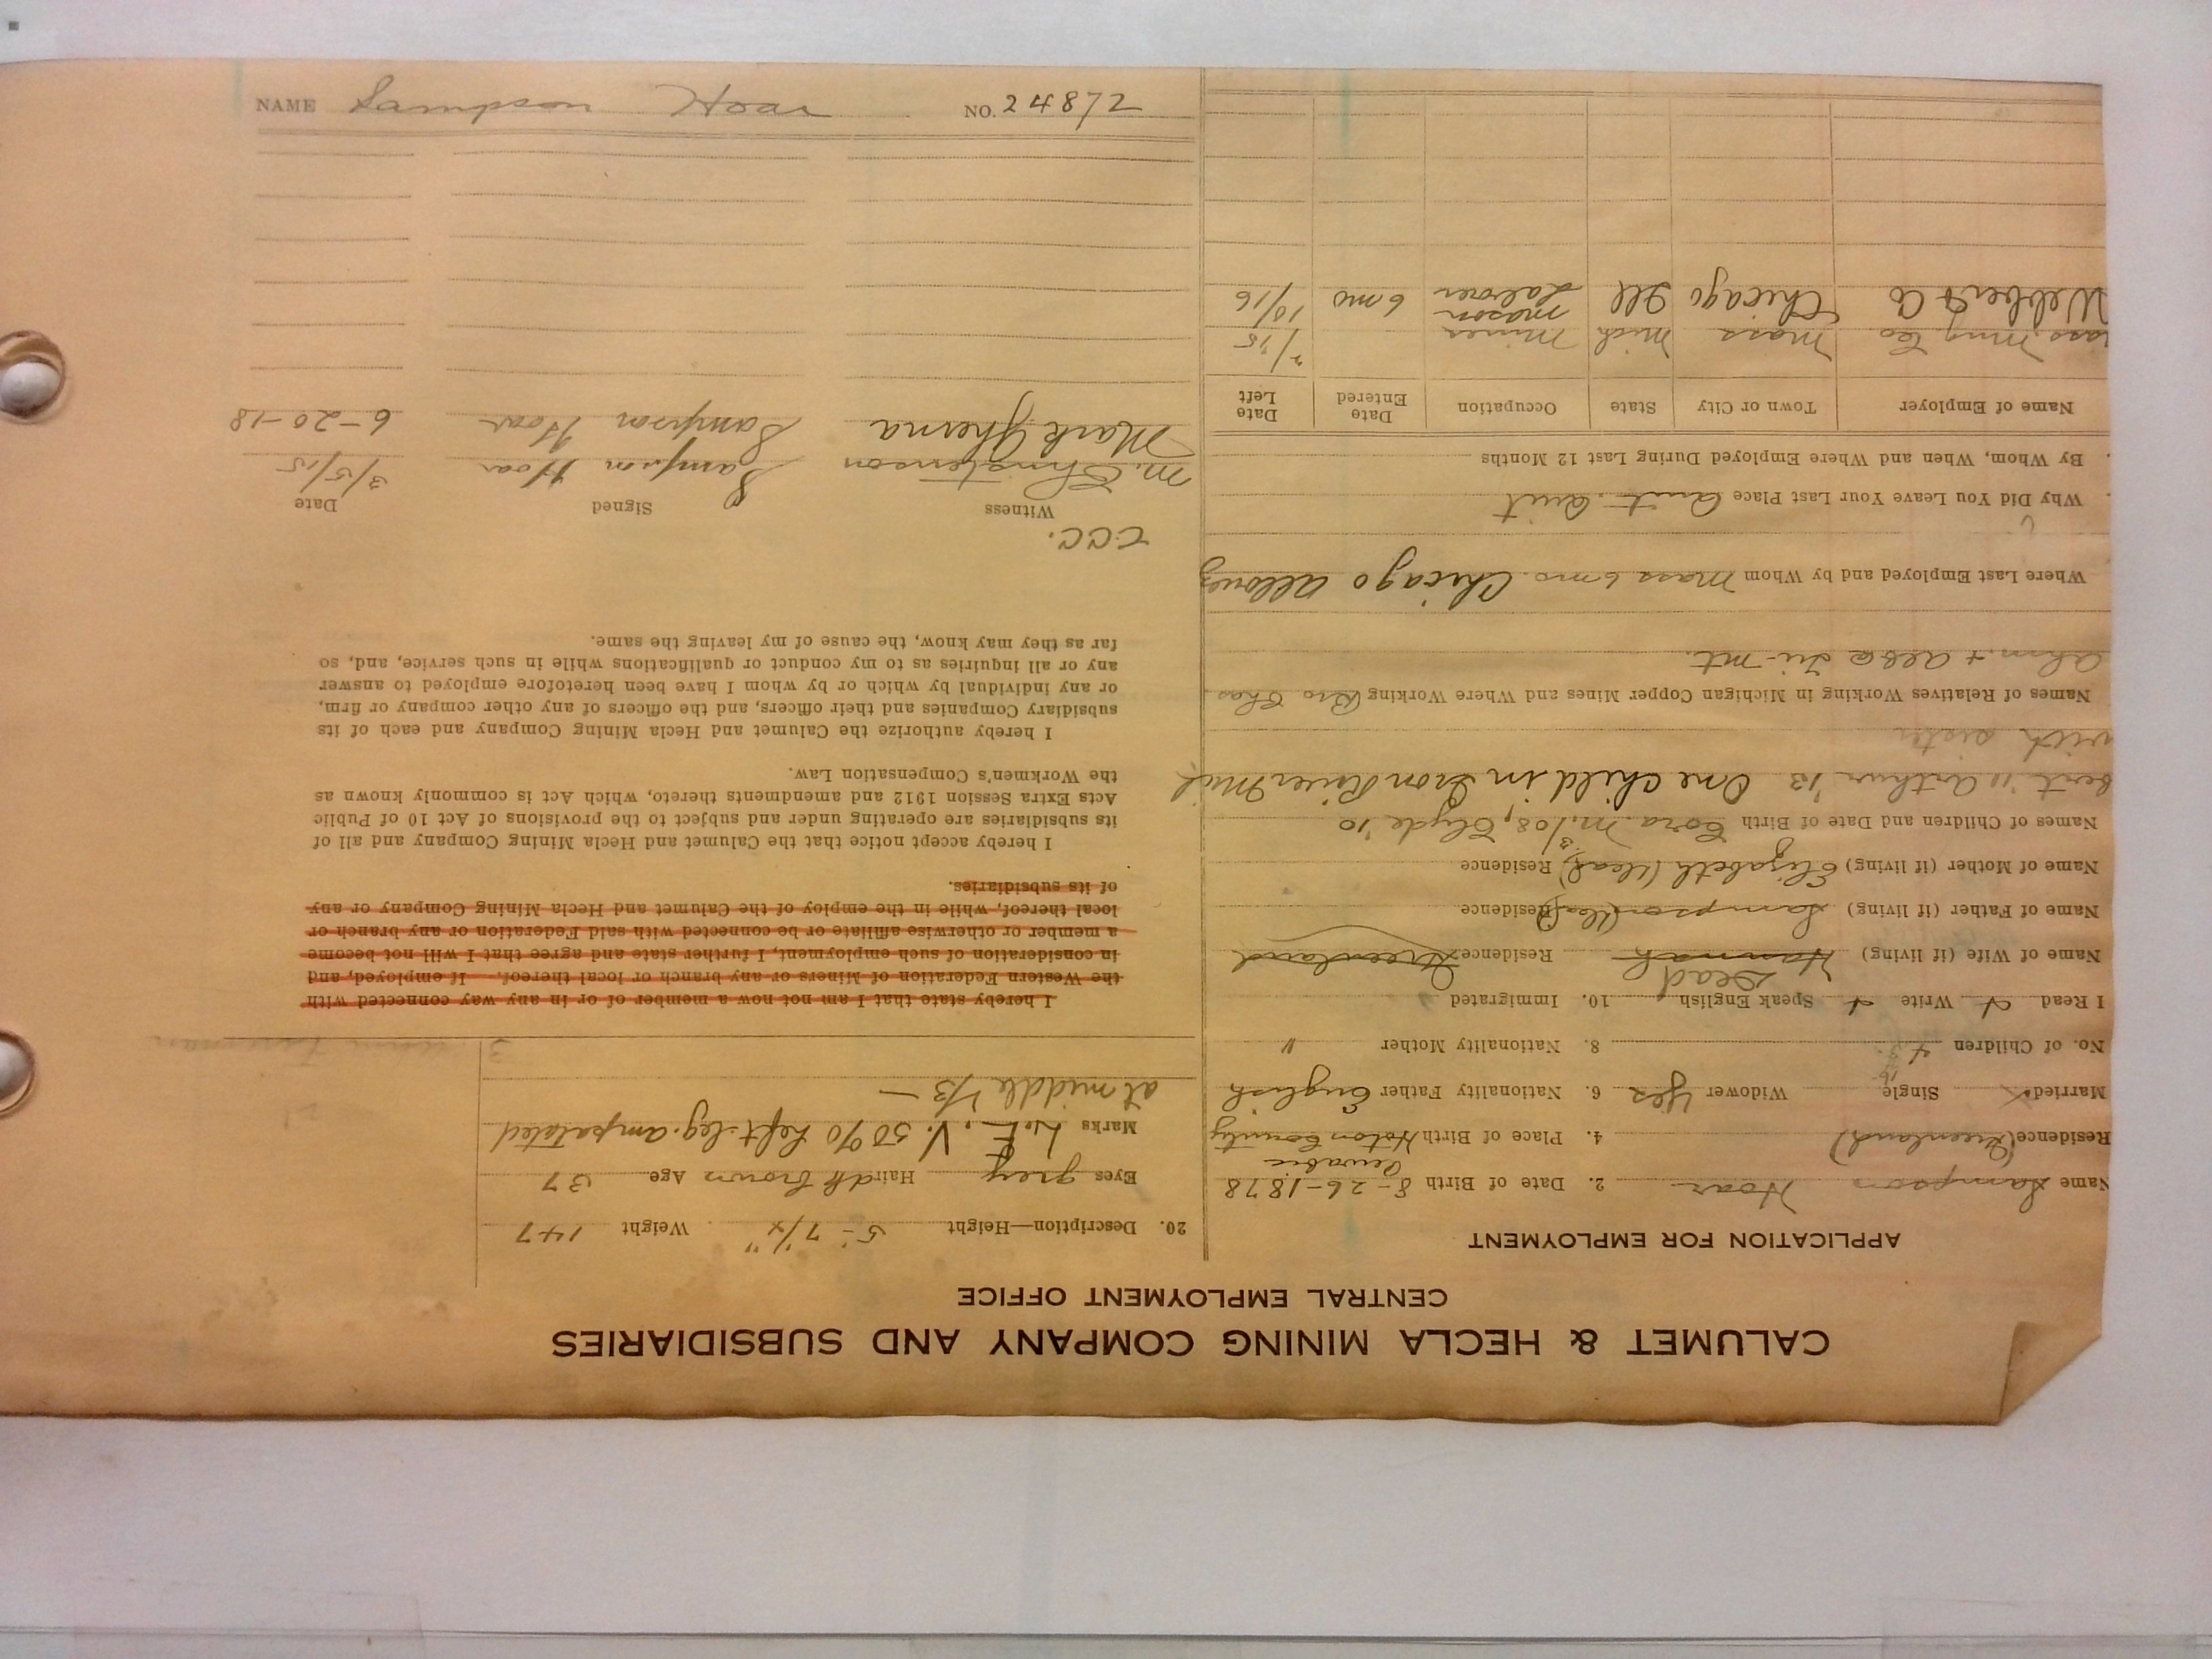 CALUMET & HECLA MINING COMPANY AND SUBSIDIARIES
CENTRAL EMPLOYMENT OFFICE
APPLICATION FOR EMPLOYMENT
Name Sampson Hoar 2. Date of Birth 8-26-1878
Residence (Greenland) 4. Place of Birth Hoton County
Married Single Widower Yes 6. Nationality Father English
No. of Children 4 8. Nationality Mother "
I Read Write Speak English 10. Immigrated
Dead
Name of Wife (if living) Hannah Residence Greenland
Name of Father (if living) Sampson (dead) Residence
Name of Mother (if living) Elizabeth (dead) Residence
Names of Children and Date of Birth Cora M. /08, Clyde '10
bert '11 Arthur '13 One child in Iron River Mich
with sister
Names of Relatives Working in Michigan Copper Mines and Where Working Bro Chas
Where Last Employed and by Whom Mass 6 mo. Chicago Allouez
Why Did You Leave Your Last Place Quit. Quit
By Whom, When and Where Employed During Last 12 Months
Name of Employer Town or City State Occupation Date Entered Date Left
ass Mng Co Mass Mich Miner /15
Chicago Ill Mason Laborer 6 mo 10/16
20. Description—Height 5-7 Weight 147
Eyes grey Hair dk brown Age 37
Marks V. 50% Left leg amputated
at middle 1/3 —
I hereby state that I am not now a member of or in any way connected with
the Western Federation of Miners or any branch or local thereof. If employed, and
in consideration of such employment, I further state and agree that I will not become
a member or otherwise affiliate or be connected with said Federation or any branch or
local thereof, while in the employ of the Calumet and Hecla Mining Company or any
of its subsidiaries.
I hereby accept notice that the Calumet and Hecla Mining Company and all of
its subsidiaries are operating under and subject to the provisions of Act 10 of Public
Acts Extra Session 1912 and amendments thereto, which Act is commonly known as
the Workmen's Compensation Law.
I hereby authorize the Calumet and Hecla Mining Company and each of its
subsidiary Companies and their officers, and the officers of any other company or firm,
or any individual by which or by whom I have been heretofore employed to answer
any or all inquiries as to my conduct or qualifications while in such service, and, so
far as they may know, the cause of my leaving the same.
Witness Signed Date
M. Christenson Sampson Hoar 3/5/15
Mark Gherna Sampson Hoar 6-20-18
NAME Sampson Hoar NO. 24872